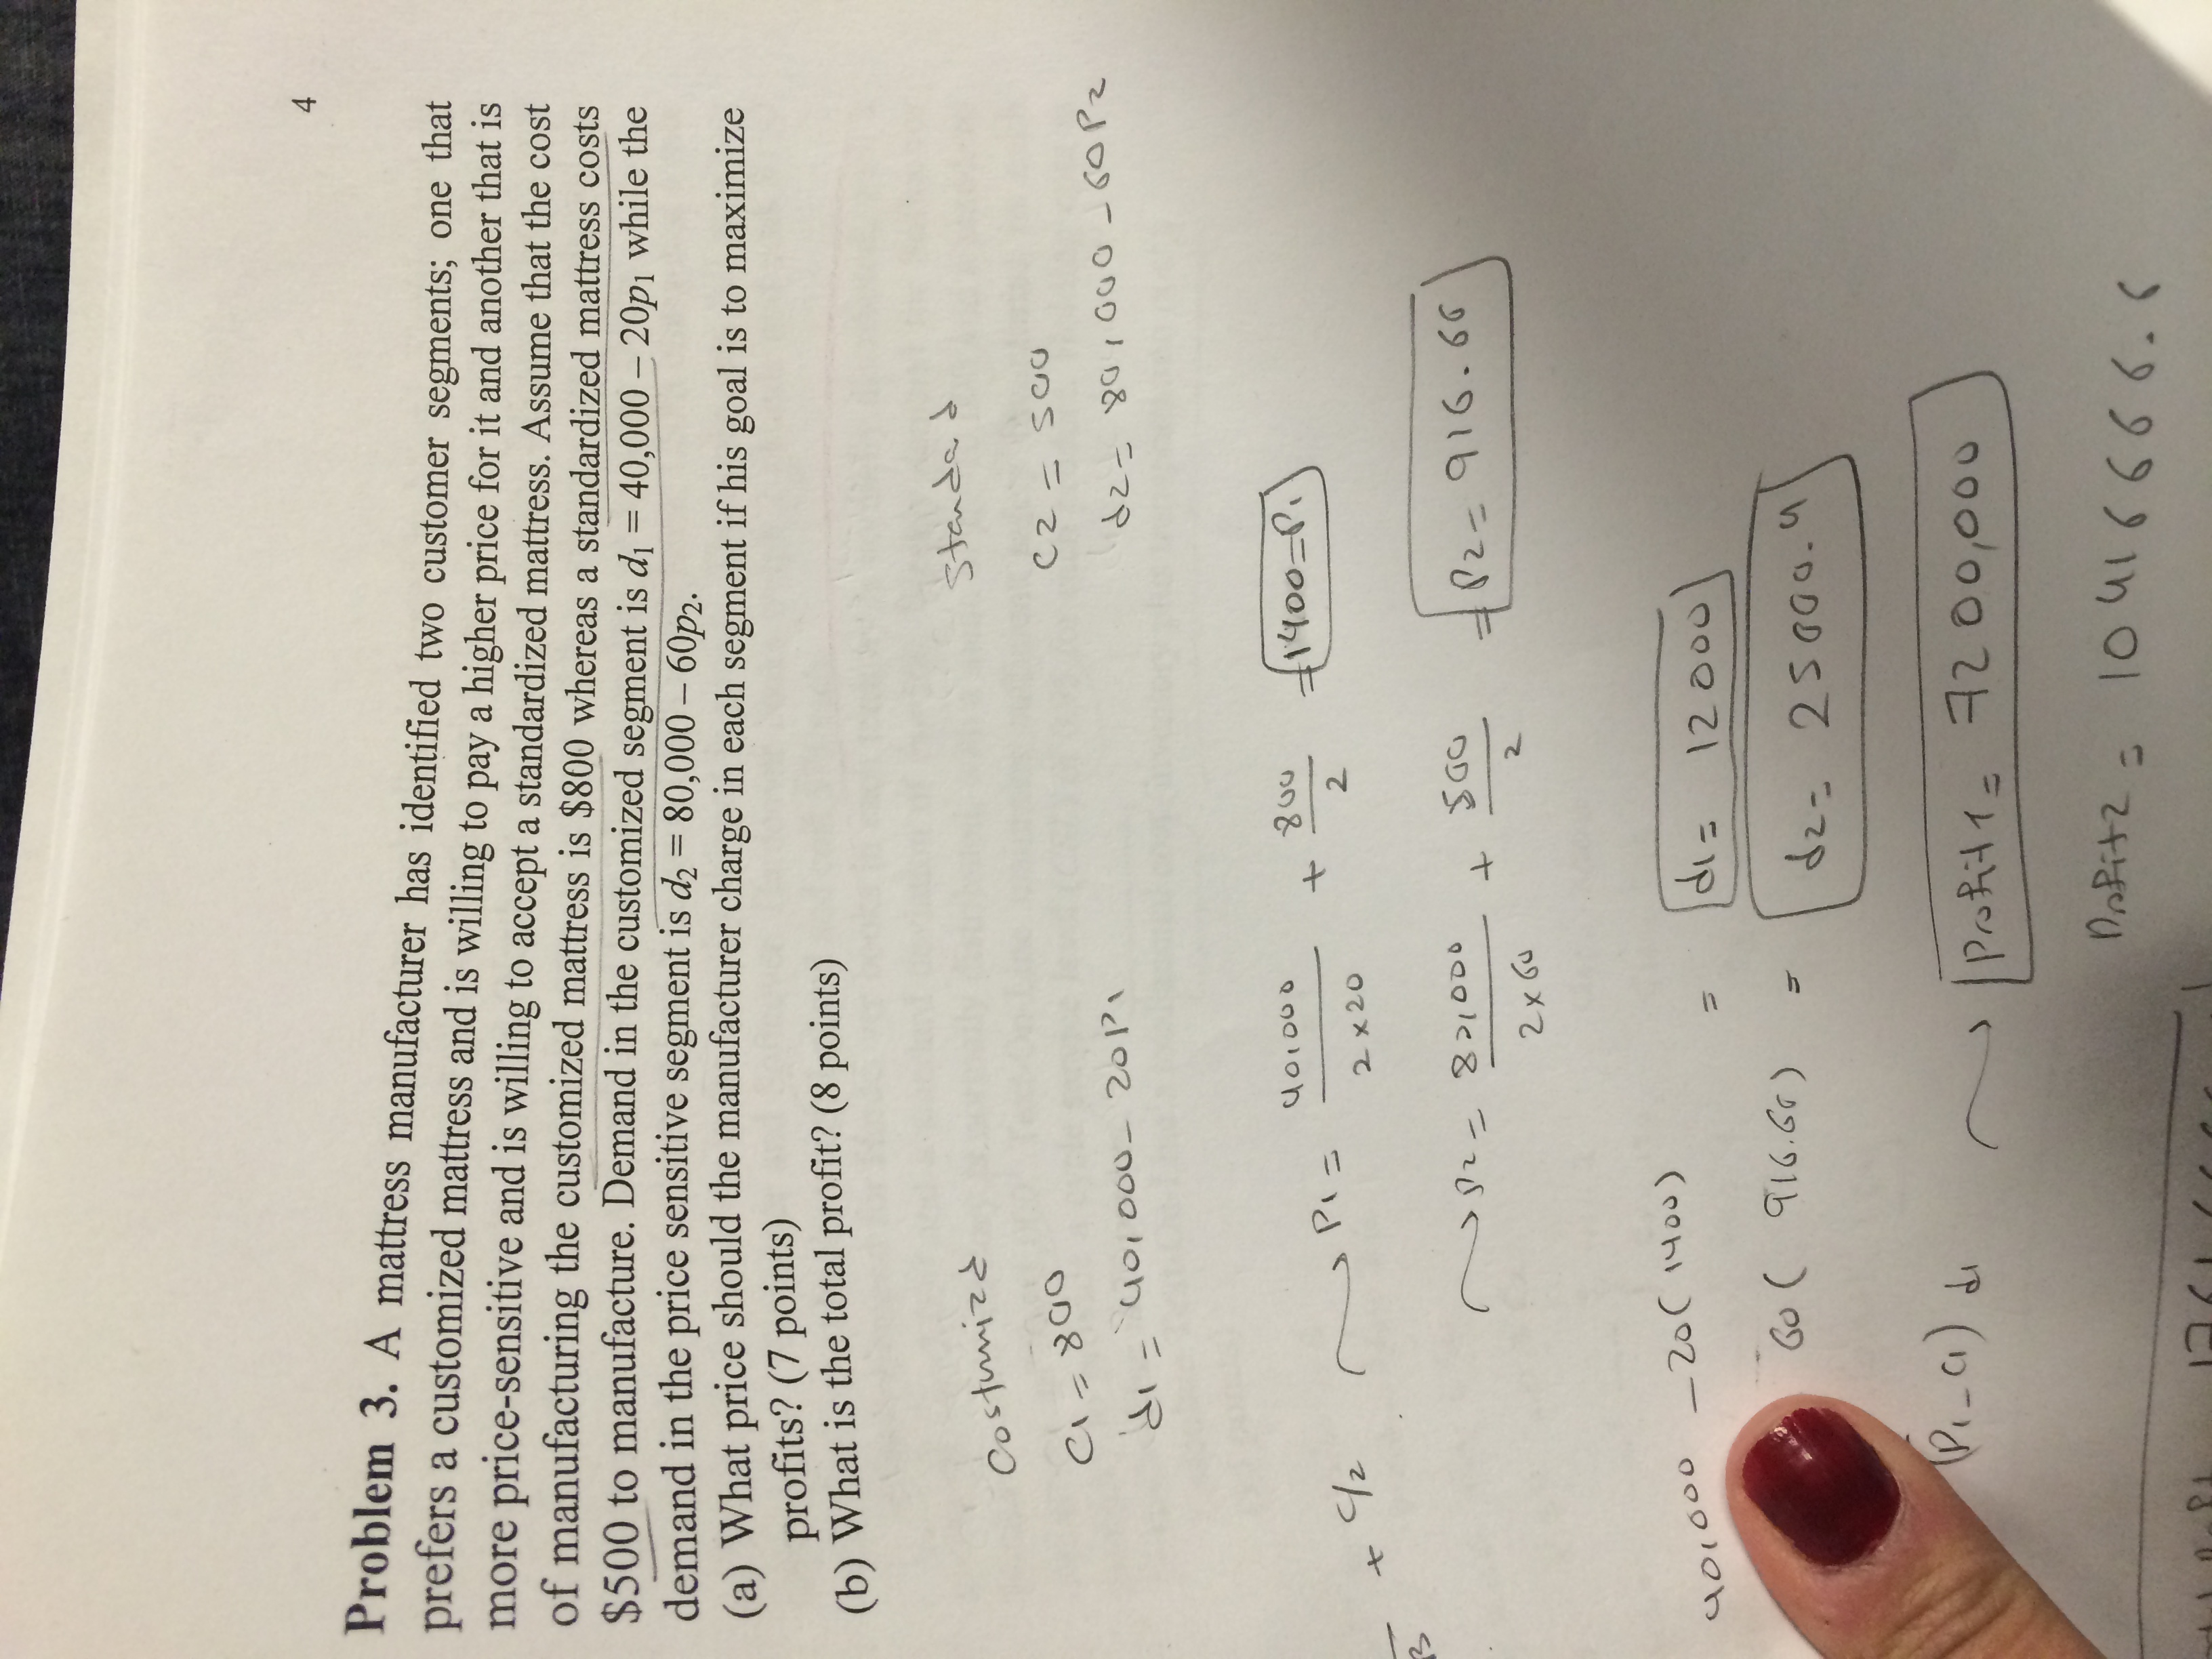 4
Problem 3. A mattress manufacturer has identified two customer segments; one that
prefers a customized mattress and is willing to pay a higher price for it and another that is
more price-sensitive and is willing to accept a standardized mattress. Assume that the cost
of manufacturing the customized mattress is $800 whereas a standardized mattress costs
$500 to manufacture. Demand in the customized segment is d₁ = 40,000 – 20p₁ while the
demand in the price sensitive segment is d₂ = 80,000 – 60p₂.
(a) What price should the manufacturer charge in each segment if his goal is to maximize
profits? (7 points)
(b) What is the total profit? (8 points)
Costumizd
Standad
C1 = 800
C2 = 500
d1 = 40,000 - 20P1
d2 = 80,000 - 60P2
+ C/2 P1 = 40,000 / 2 x 20 + 800 / 2 = 1400 = P1
P2 = 80,000 / 2 x 60 + 500 / 2 = P2 = 916.66
40,000 - 20( 1400) = d1 = 12000
60( 916.66) = d2 = 25000.4
(P1 - C1) d1 Profit 1 = 7200,000
Profit2 = 10416666.6